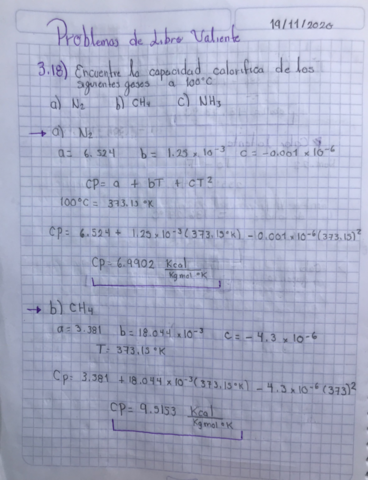 19/11/2020
Problemas de Libro Valiente
3.18) Encuentre la capacidad calorifica de los
siguientes gases a 100°C
a) N₂ b) CH₄ c) NH₃
→ a) N₂
a = 6.524 b = 1.25 x 10⁻³ c = -0.001 x 10⁻⁶
CP = a + bT + CT²
100°C = 373.15 °K
CP = 6.524 + 1.25 x 10⁻³ (373.15°K) - 0.001 x 10⁻⁶ (373.15)²
CP = 6.9902 Kcal / Kgmol °K
→ b) CH₄
a = 3.381 b = 18.044 x 10⁻³ c = - 4.3 x 10⁻⁶
T = 373.15 °K
Cp = 3.381 + 18.044 x 10⁻³ (373.15°K) - 4.3 x 10⁻⁶ (373)²
CP = 9.5153 Kcal / Kgmol °K